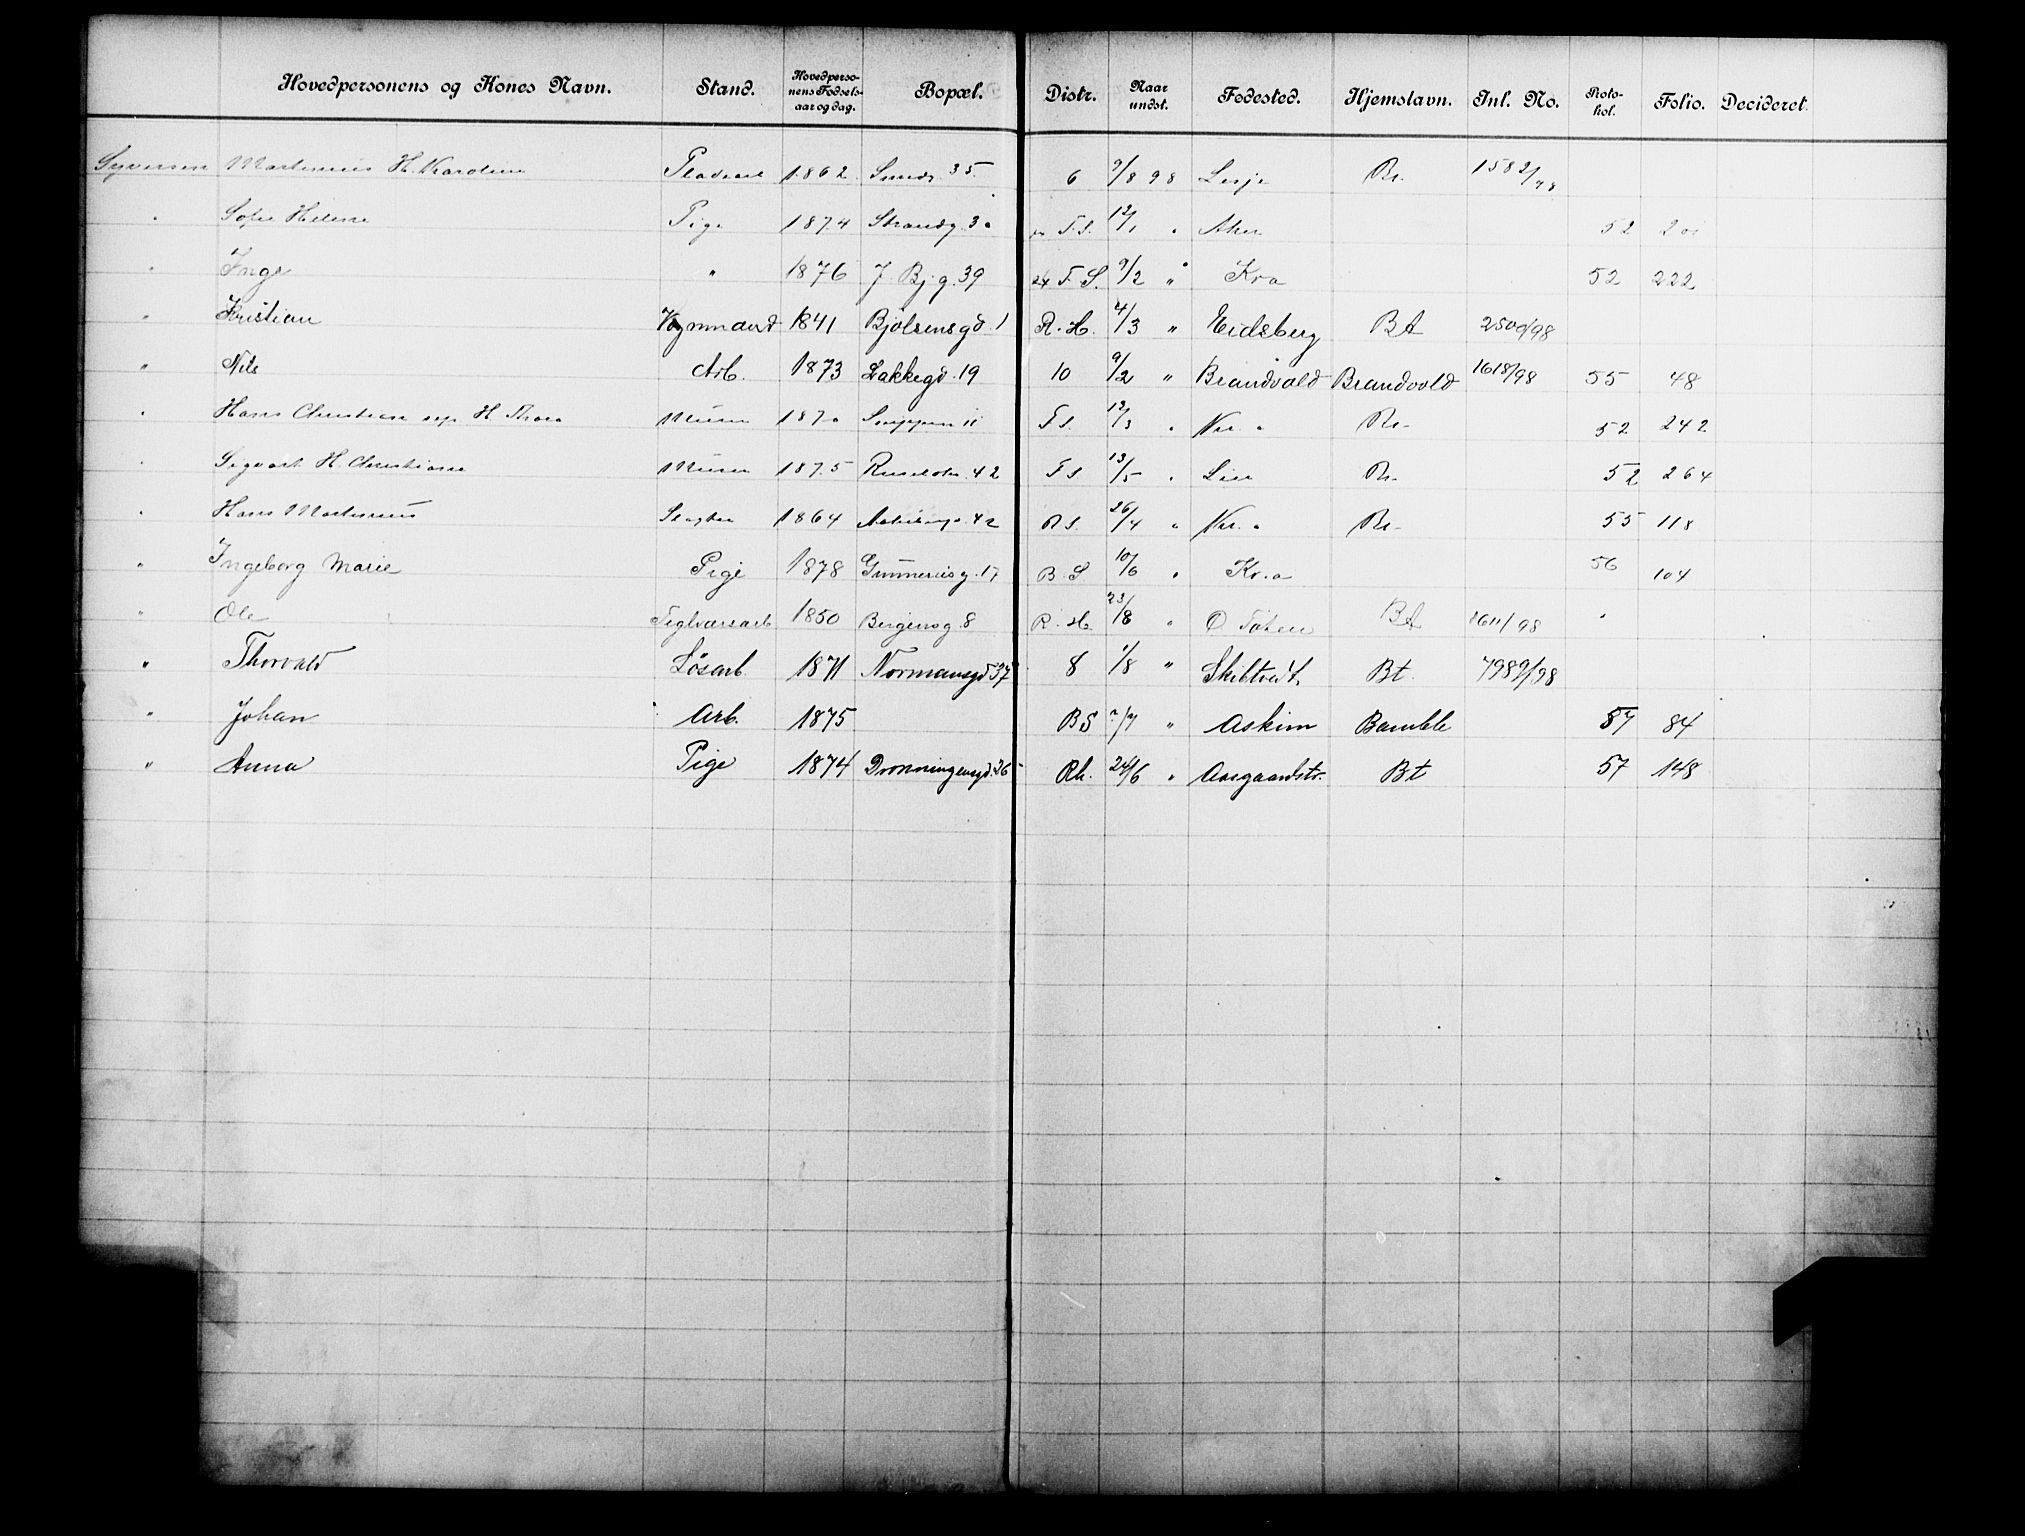 Hovedpersonens og Kones Navn. Stand. Hovedpersonens Fødselsaar og dag. Bopæl. Distr. Naar undst. Fødested. Hjemstavn. Inl. No. Protokol. Folio. Decideret.
Syversen Martinius H. Karoline 1862 35 6 9/8 98 Lesje Bt. 1582/98
" Sofie Helene Pige 1874 Strandg. 3 F.S. 12/1 " Aker 52
" Inga " 1876 J. Bj g. 39 F.S. 9/2 " Kra 52 222
" Kristian Vognmand 1841 Bjølsensgd. 1 R.H. 4/3 " Eidsberg Bt 2500/98
" Nils Arb. 1873 Lakkegd. 19 10 9/2 " Brandvold Brandvold 1618/98 55 48
" Hans Christian H. Thora Murer 1870 11 F.S. 12/3 " Kr. a Bt. 52 242
" Sigvart H. Christiane Murer 1875 42 F.S. 13/5 " Lier Bt. 52 264
" Hans Martinius Slagter 1864 42 B.S. 26/4 " Kr. a Bt. 55 118
" Ingeborg Marie Pige 1878 Gunnerusg. 17 B.S 10/6 " Kr.a 56 104
" Ole Teglværsarb 1850 Bergensg. 8 R.H. 23/8 " Ø. Toten Bt /98
" Thorvald Løsarb. 1871 Normansgd 37 8 1/8 " Skibtvedt. Bt. 7989/98
" Johan Arb. 1875 BS " Askim Bamble 57 84
" Anna Pige 1874 Dronningensgd. 26 Rh. 24/6 " Aasgaardstr. Bt 57 148